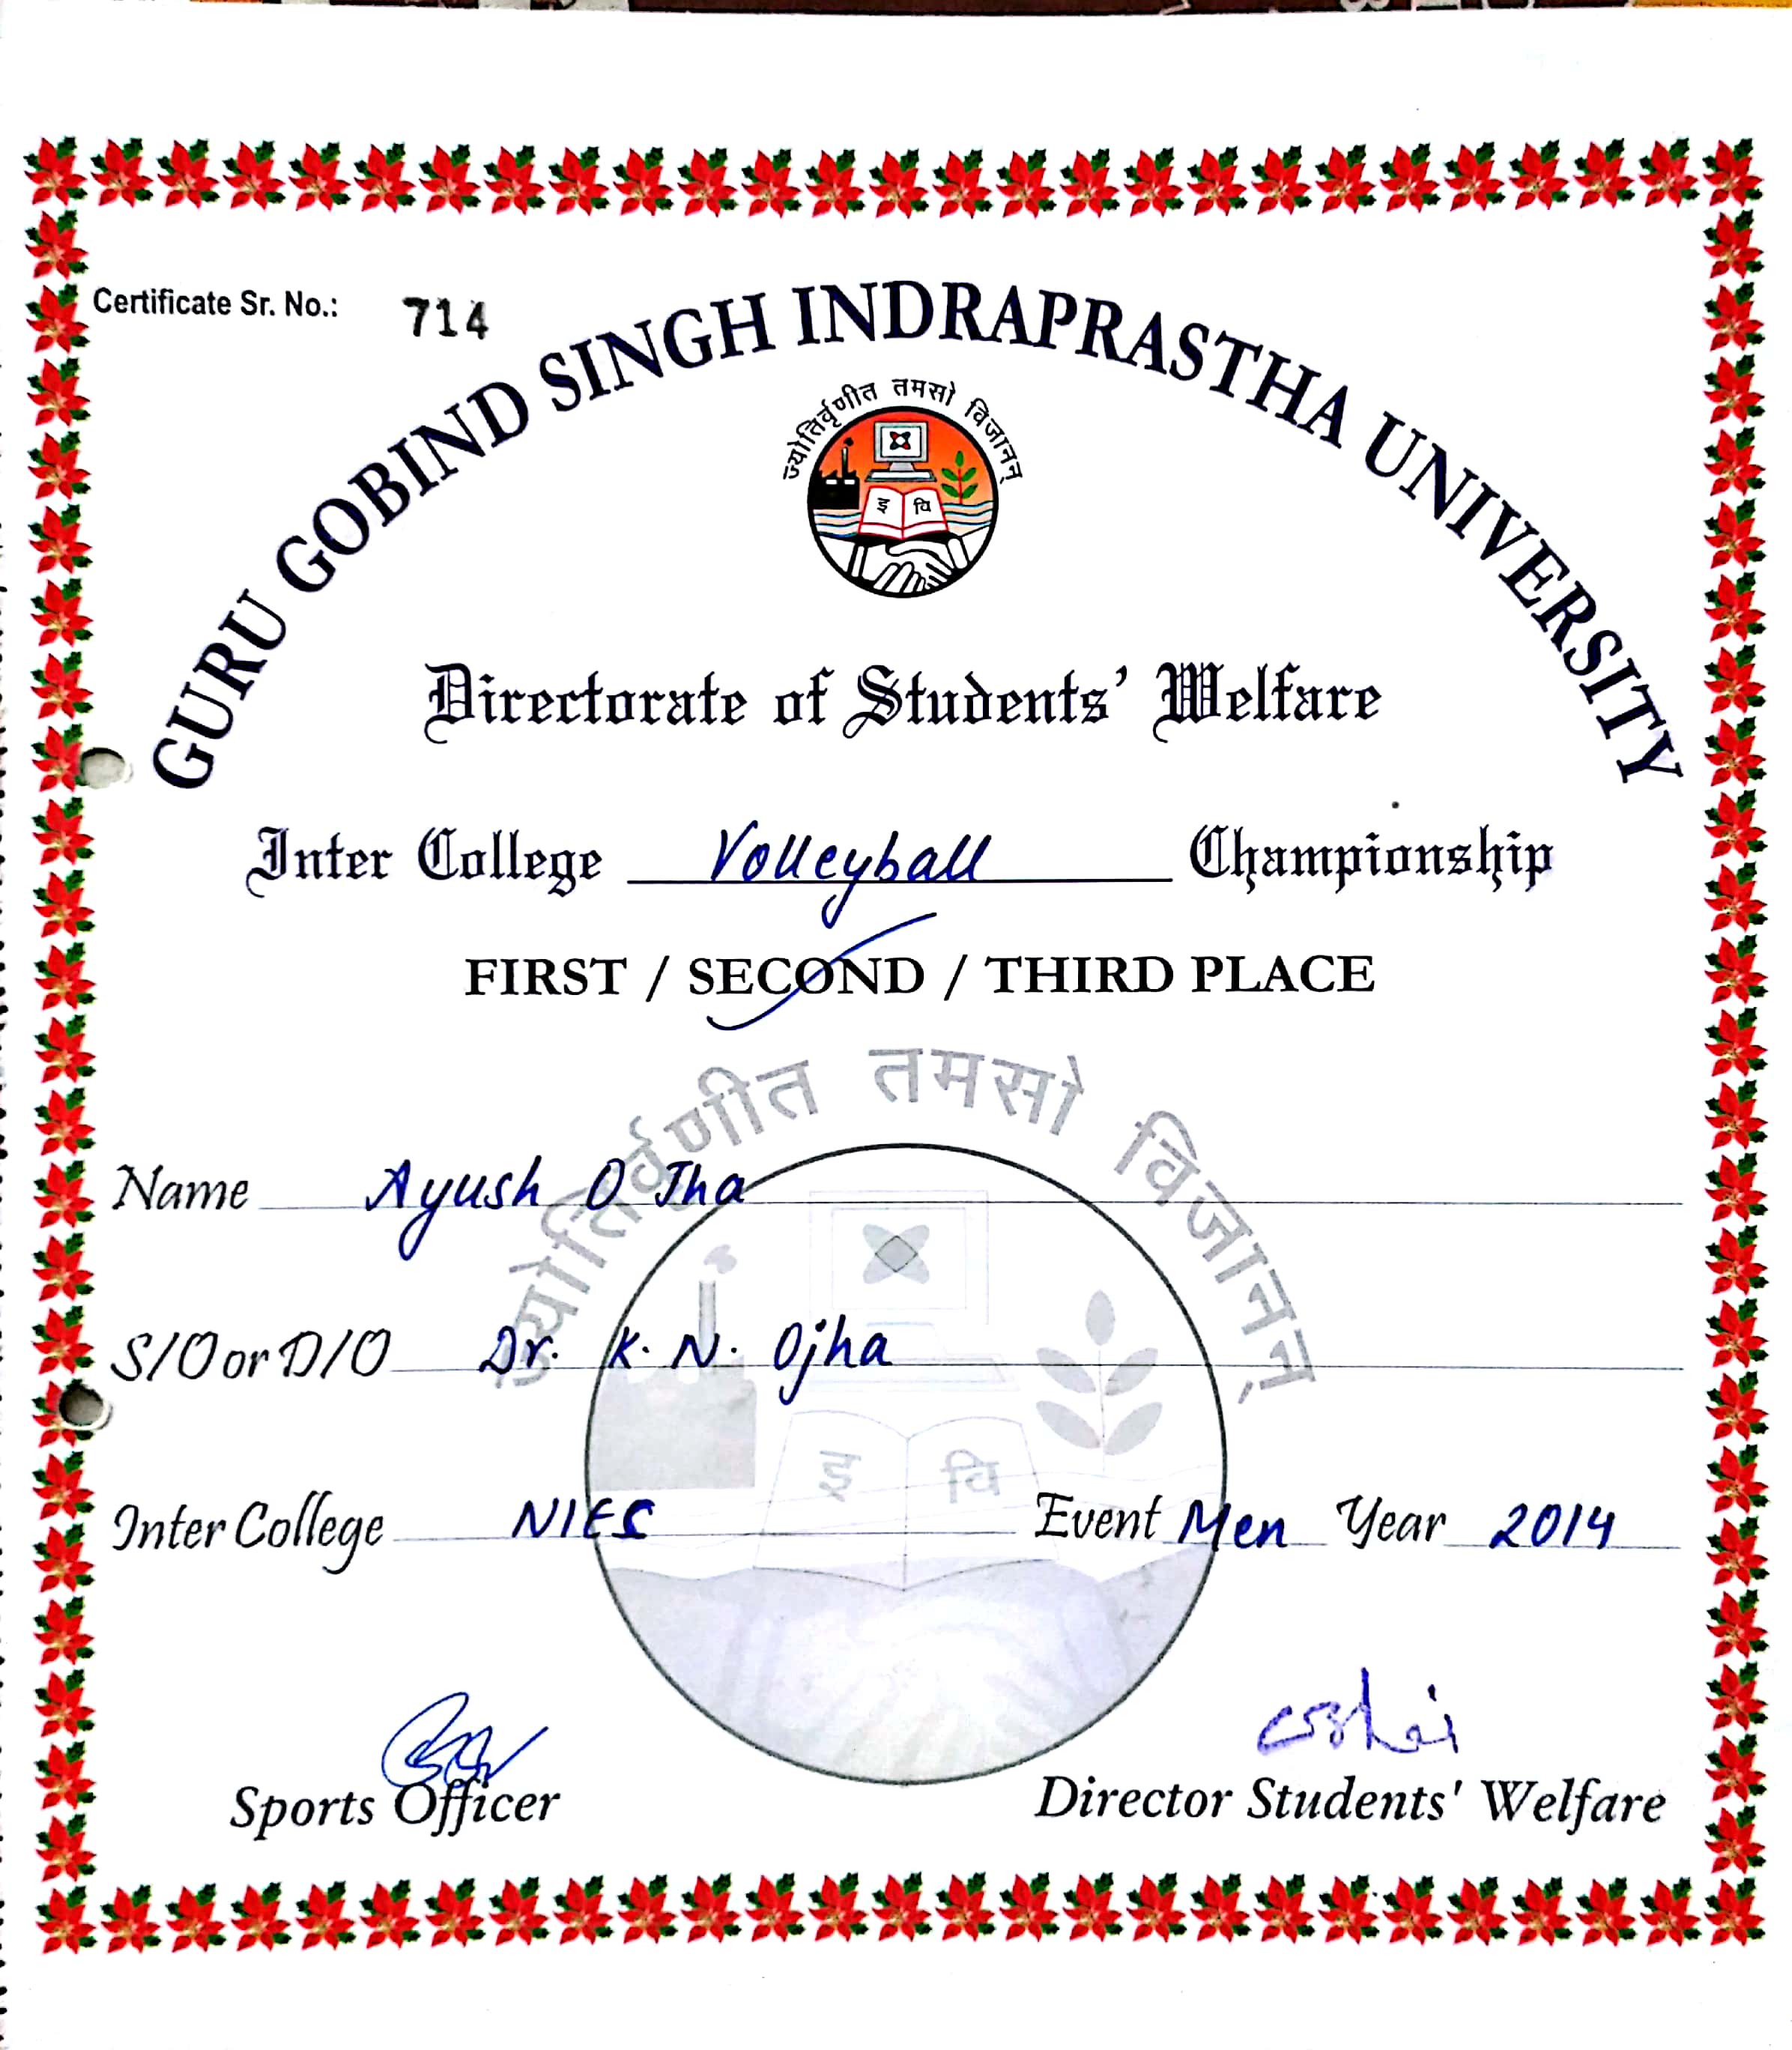 Certificate Sr. No.: 714
GURU GOBIND SINGH INDRAPRASTHA UNIVERSITY
ज्योतिर्वृणीत तमसो विजानन्
इ वि
Directorate of Students' Welfare
Inter College Volleyball Championship
FIRST / SECOND / THIRD PLACE
ज्योतिर्वृणीत तमसो विजानन्
Name Ayush O Jha
S/O or D/O Dr. K. N. Ojha
इ वि
Inter College NIES Event Men Year 2014
Sports Officer Director Students' Welfare